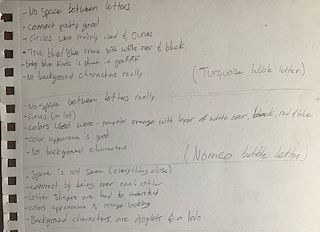 - No space between letters
- Connect pretty good
- Circles were mainly used & curves
- True blue/Blue prime with white over & black
- baby blue kinda is shown in graffiti
- No background characters really
(Turquoise bubble letters)
- No space between letters really
- Curvs (a lot)
- Colors used were - pumpkin orange with layer of white over, black, red & blue
- Color appearance is good
- No background characters
(Nomco bubble letters)
- Space is not seen (everything close)
- connect by being over each other
- Letter shapes are hard to understand
- colors appearance is orange looking
- Background characters are droplets & a halo